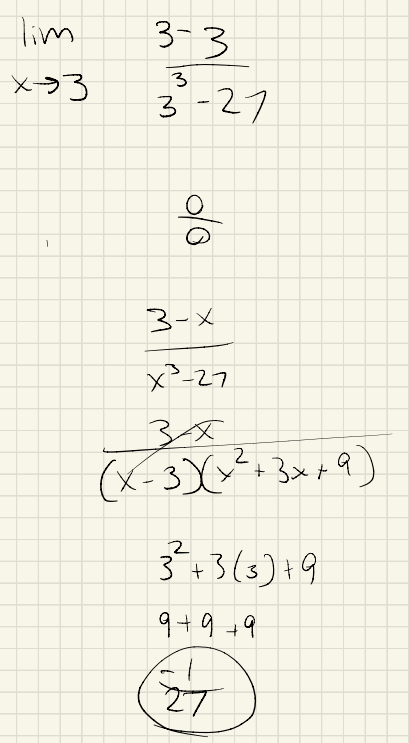 lim x→3 (3-3)/(3^3-27)
0/0
(3-x)/(x^3-27)
(3-x)/((x-3)(x^2+3x+9))
3^2+3(3)+9
9+9+9
-1/27